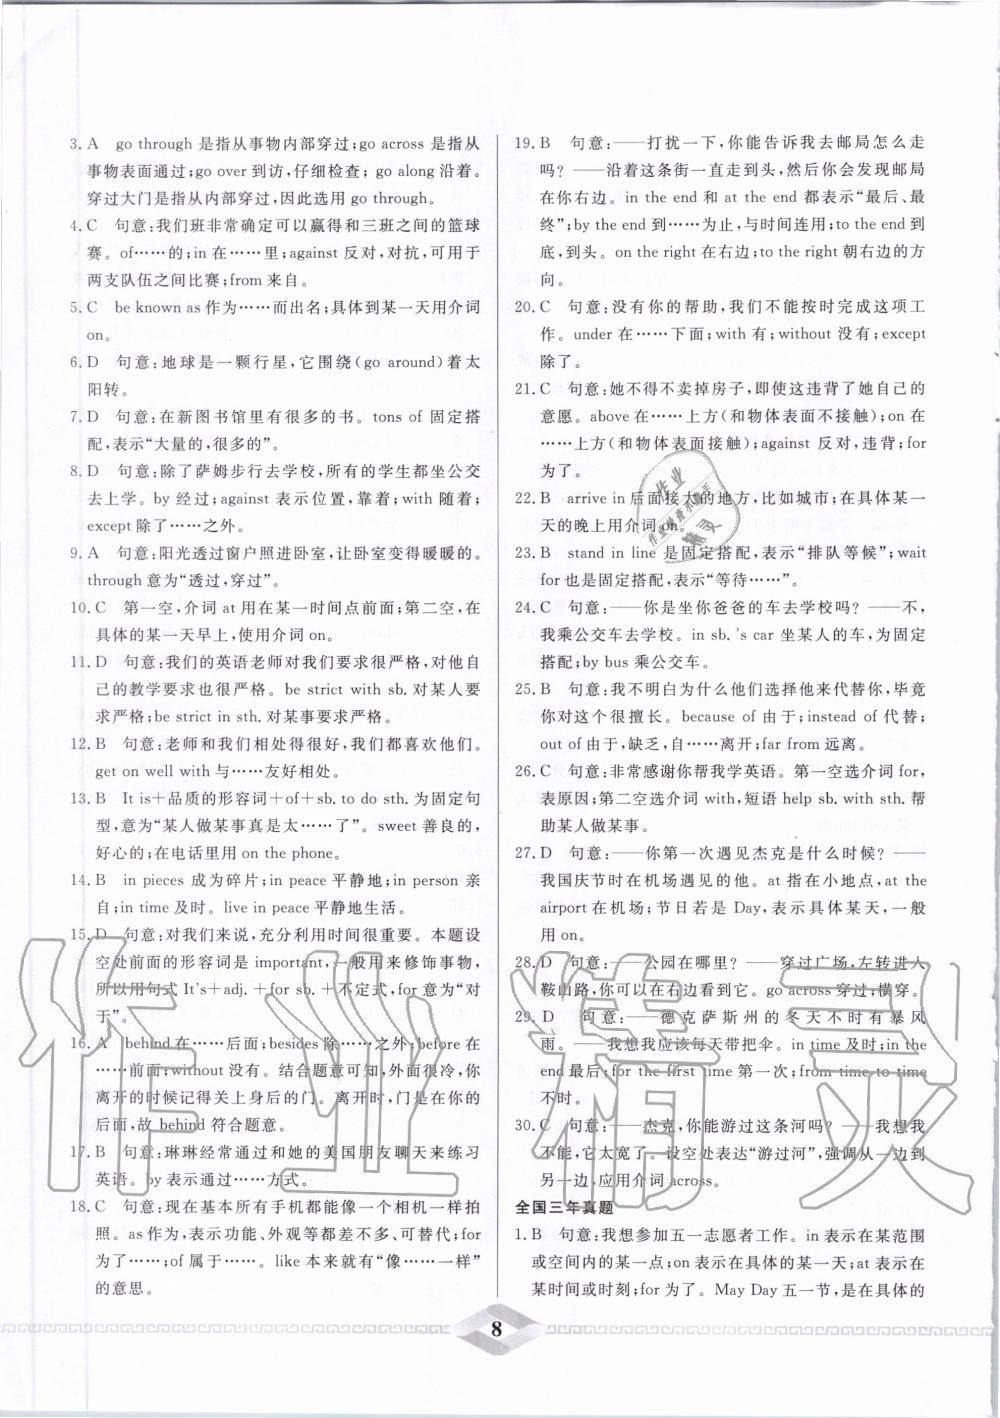 3. A　go through 是指从事物内部穿过;go across 是指从
事物表面通过;go over 到访,仔细检查;go along 沿着。
穿过大门是指从内部穿过,因此选用 go through。
4. C　句意:我们班非常确定可以赢得和三班之间的篮球
赛。of……的;in 在……里;against 反对,对抗,可用于
两支队伍之间比赛;from 来自。
5. C　be known as 作为……而出名;具体到某一天用介词
on。
6. D　句意:地球是一颗行星,它围绕(go around)着太
阳转。
7. D　句意:在新图书馆里有很多的书。tons of 固定搭
配,表示“大量的,很多的”。
8. D　句意:除了萨姆步行去学校,所有的学生都坐公交
去上学。by 经过;against 表示位置,靠着;with 随着;
except 除了……之外。
9. A　句意:阳光透过窗户照进卧室,让卧室变得暖暖的。
through 意为“透过,穿过”。
10. C　第一空,介词 at 用在某一时间点前面;第二空,在
具体的某一天早上,使用介词 on。
11. D　句意:我们的英语老师对我们要求很严格,对他自
己的教学要求也很严格。be strict with sb. 对某人要
求严格;be strict in sth. 对某事要求严格。
12. B　句意:老师和我们相处得很好,我们都喜欢他们。
get on well with 与……友好相处。
13. B　It is＋品质的形容词＋of＋sb. to do sth. 为固定句
型,意为“某人做某事真是太……了”。sweet 善良的,
好心的;在电话里用 on the phone。
14. B　in pieces 成为碎片;in peace 平静地;in person 亲
自;in time 及时。live in peace 平静地生活。
15. D　句意:对我们来说,充分利用时间很重要。本题设
空处前面的形容词是 important,一般用来修饰事物,
所以用句式 It's＋adj. ＋for sb. ＋不定式,for 意为“对
于”。
16. A　behind 在……后面;besides 除……之外;before 在
……前面;without 没有。结合题意可知,外面很冷,你
离开的时候记得关上身后的门。离开时,门是在你的
后面,故 behind 符合题意。
17. B　句意:琳琳经常通过和她的美国朋友聊天来练习
英语。by 表示通过……方式。
18. C　句意:现在基本所有手机都能像一个相机一样拍
照。as 作为,表示功能、外观等都差不多,可替代;for
为了……;of 属于……。like 本来就有“像……一样”
的意思。
19. B　句意:——打扰一下,你能告诉我去邮局怎么走
吗? ——沿着这条街一直走到头,然后你会发现邮局
在你右边。in the end 和 at the end 都表示“最后、最
终”;by the end 到……为止,与时间连用;to the end 到
底,到头。on the right 在右边;to the right 朝右边的方
向。
20. C　句意:没有你的帮助,我们不能按时完成这项工
作。under 在……下面;with 有;without 没有;except
除了。
21. C　句意:她不得不卖掉房子,即使这违背了她自己的
意愿。above 在……上方(和物体表面不接触);on 在
……上方(和物体表面接触);against 反对,违背;for
为了。
22. B　arrive in 后面接大的地方,比如城市;在具体某一
天的晚上用介词 on。
23. B　stand in line 是固定搭配,表示“排队等候”;wait
for 也是固定搭配,表示“等待……”。
24. C　句意:——你是坐你爸爸的车去学校吗? ——不,
我乘公交车去学校。in sb. 's car 坐某人的车,为固定
搭配;by bus 乘公交车。
25. B　句意:我不明白为什么他们选择他来代替你,毕竟
你对这个很擅长。because of 由于;instead of 代替;
out of 由于,缺乏,自……离开;far from 远离。
26. C　句意:非常感谢你帮我学英语。第一空选介词 for,
表原因;第二空选介词 with,短语 help sb. with sth. 帮
助某人做某事。
27. D　句意:——你第一次遇见杰克是什么时候? ——
我国庆节时在机场遇见的他。at 指在小地点,at the
airport 在机场;节日若是 Day,表示具体某天,一般
用 on。
28. D　句意:——公园在哪里? ——穿过广场,左转进入
鞍山路,你可以在右边看到它。go across 穿过;横穿。
29. D　句意:——德克萨斯州的冬天不时有暴风
雨。——我想我应该每天带把伞。in time 及时;in the
end 最后;for the first time 第一次;from time to time
不时。
30. C　句意:——杰克,你能游过这条河吗? ——我想我
不能,它太宽了。设空处表达“游过河”,强调从一边到
另一边,应用介词 across。
全国三年真题
1. B　句意:我想参加五一志愿者工作。in 表示在某范围
或空间内的某一点;on 表示在某一天或某些天;at 表示在
某时间或时刻;for 为了。May Day 五一节,是在具体的
8
作业精灵
作业检查小助手
作业
精灵